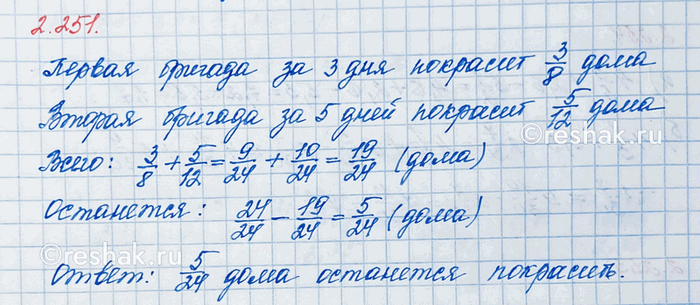 2.251.
Первая бригада за 3 дня покрасит 3/8 дома
Вторая бригада за 5 дней покрасит 5/12 дома
Всего: 3/8 + 5/12 = 9/24 + 10/24 = 19/24 (дома)
Останется: 24/24 - 19/24 = 5/24 (дома)
Ответ: 5/24 дома останется покрасить.
©reshak.ru
©reshak.ru